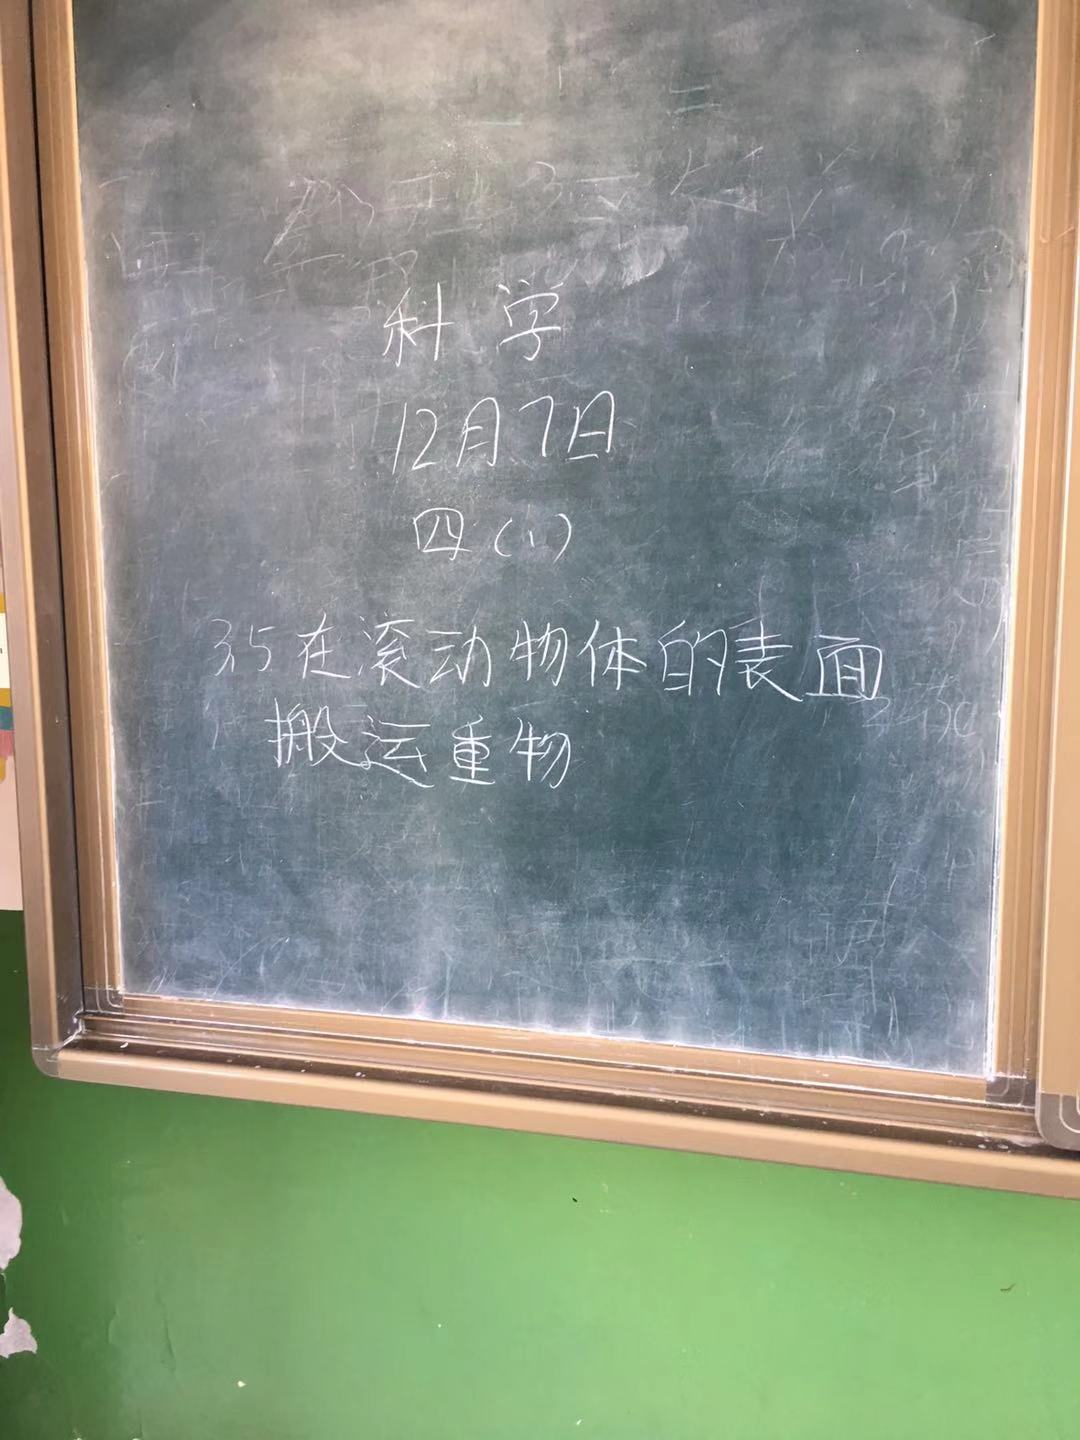 科学
12月7日
四(1)
3.5在滚动物体的表面
搬运重物